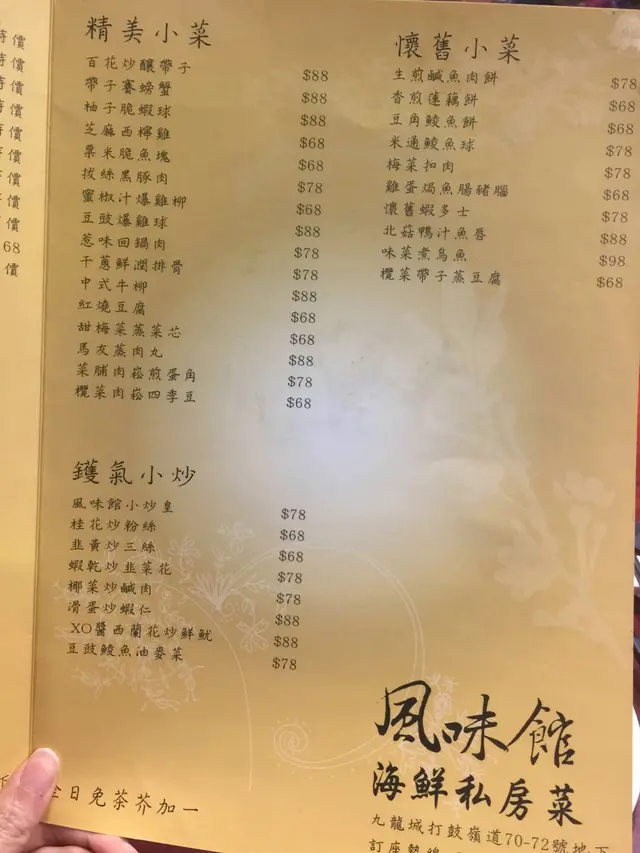 價
價
價
價
價
價
價
價
價
68
價
精美小菜
百花炒釀帶子 $88
帶子賽螃蟹 $88
柚子脆蝦球 $88
芝麻西檸雞 $68
粟米脆魚塊 $68
拔絲黑豚肉 $78
蜜椒汁爆雞柳 $68
豆豉爆雞球 $88
惹味回鍋肉 $78
干蔥鮮潤排骨 $78
中式牛柳 $88
紅燒豆腐 $68
甜梅菜蒸菜芯 $68
馬友蒸肉丸 $88
菜脯肉崧煎蛋角 $78
欖菜肉崧四季豆 $68
懷舊小菜
生煎鹹魚肉餅 $78
香煎蓮藕餅 $68
豆角鯪魚餅 $68
米通鯪魚球 $78
梅菜扣肉 $78
雞蛋焗魚腸豬腦 $68
懷舊蝦多士 $78
北菇鴨汁魚唇 $88
味菜煮烏魚 $98
欖菜帶子蒸豆腐 $68
鑊氣小炒
風味館小炒皇 $78
桂花炒粉絲 $68
韭黃炒三絲 $68
蝦乾炒韭菜花 $78
椰菜炒鹹肉 $78
滑蛋炒蝦仁 $88
XO醬西蘭花炒鮮魷 $88
豆豉鯪魚油麥菜 $78
全日免茶芥加一
風味館
海鮮私房菜
九龍城打鼓嶺道70-72號地下
訂座熱線